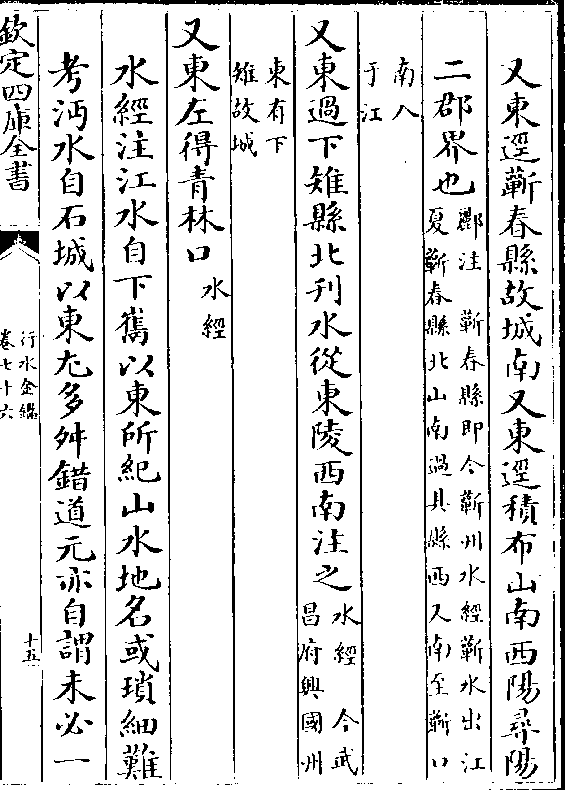 又東逕蘄春縣故城南又東逕積布山南西陽尋陽
二郡界也
酈注　蘄春縣即今蘄州水經蘄水出江
夏蘄春縣北山南過其縣西又南至蘄口
南入
于江
又東過下雉縣北刋水從東陵西南注之
水經　今武
昌府興國州
東有下
雉故城
又東左得青林口
水經
水經注江水自下雋以東所紀山水地名或瑣細難
考沔水自石城以東尤多舛錯道元亦自謂未必一
欽定四庫全書
行水金鑑
卷七十六
十五